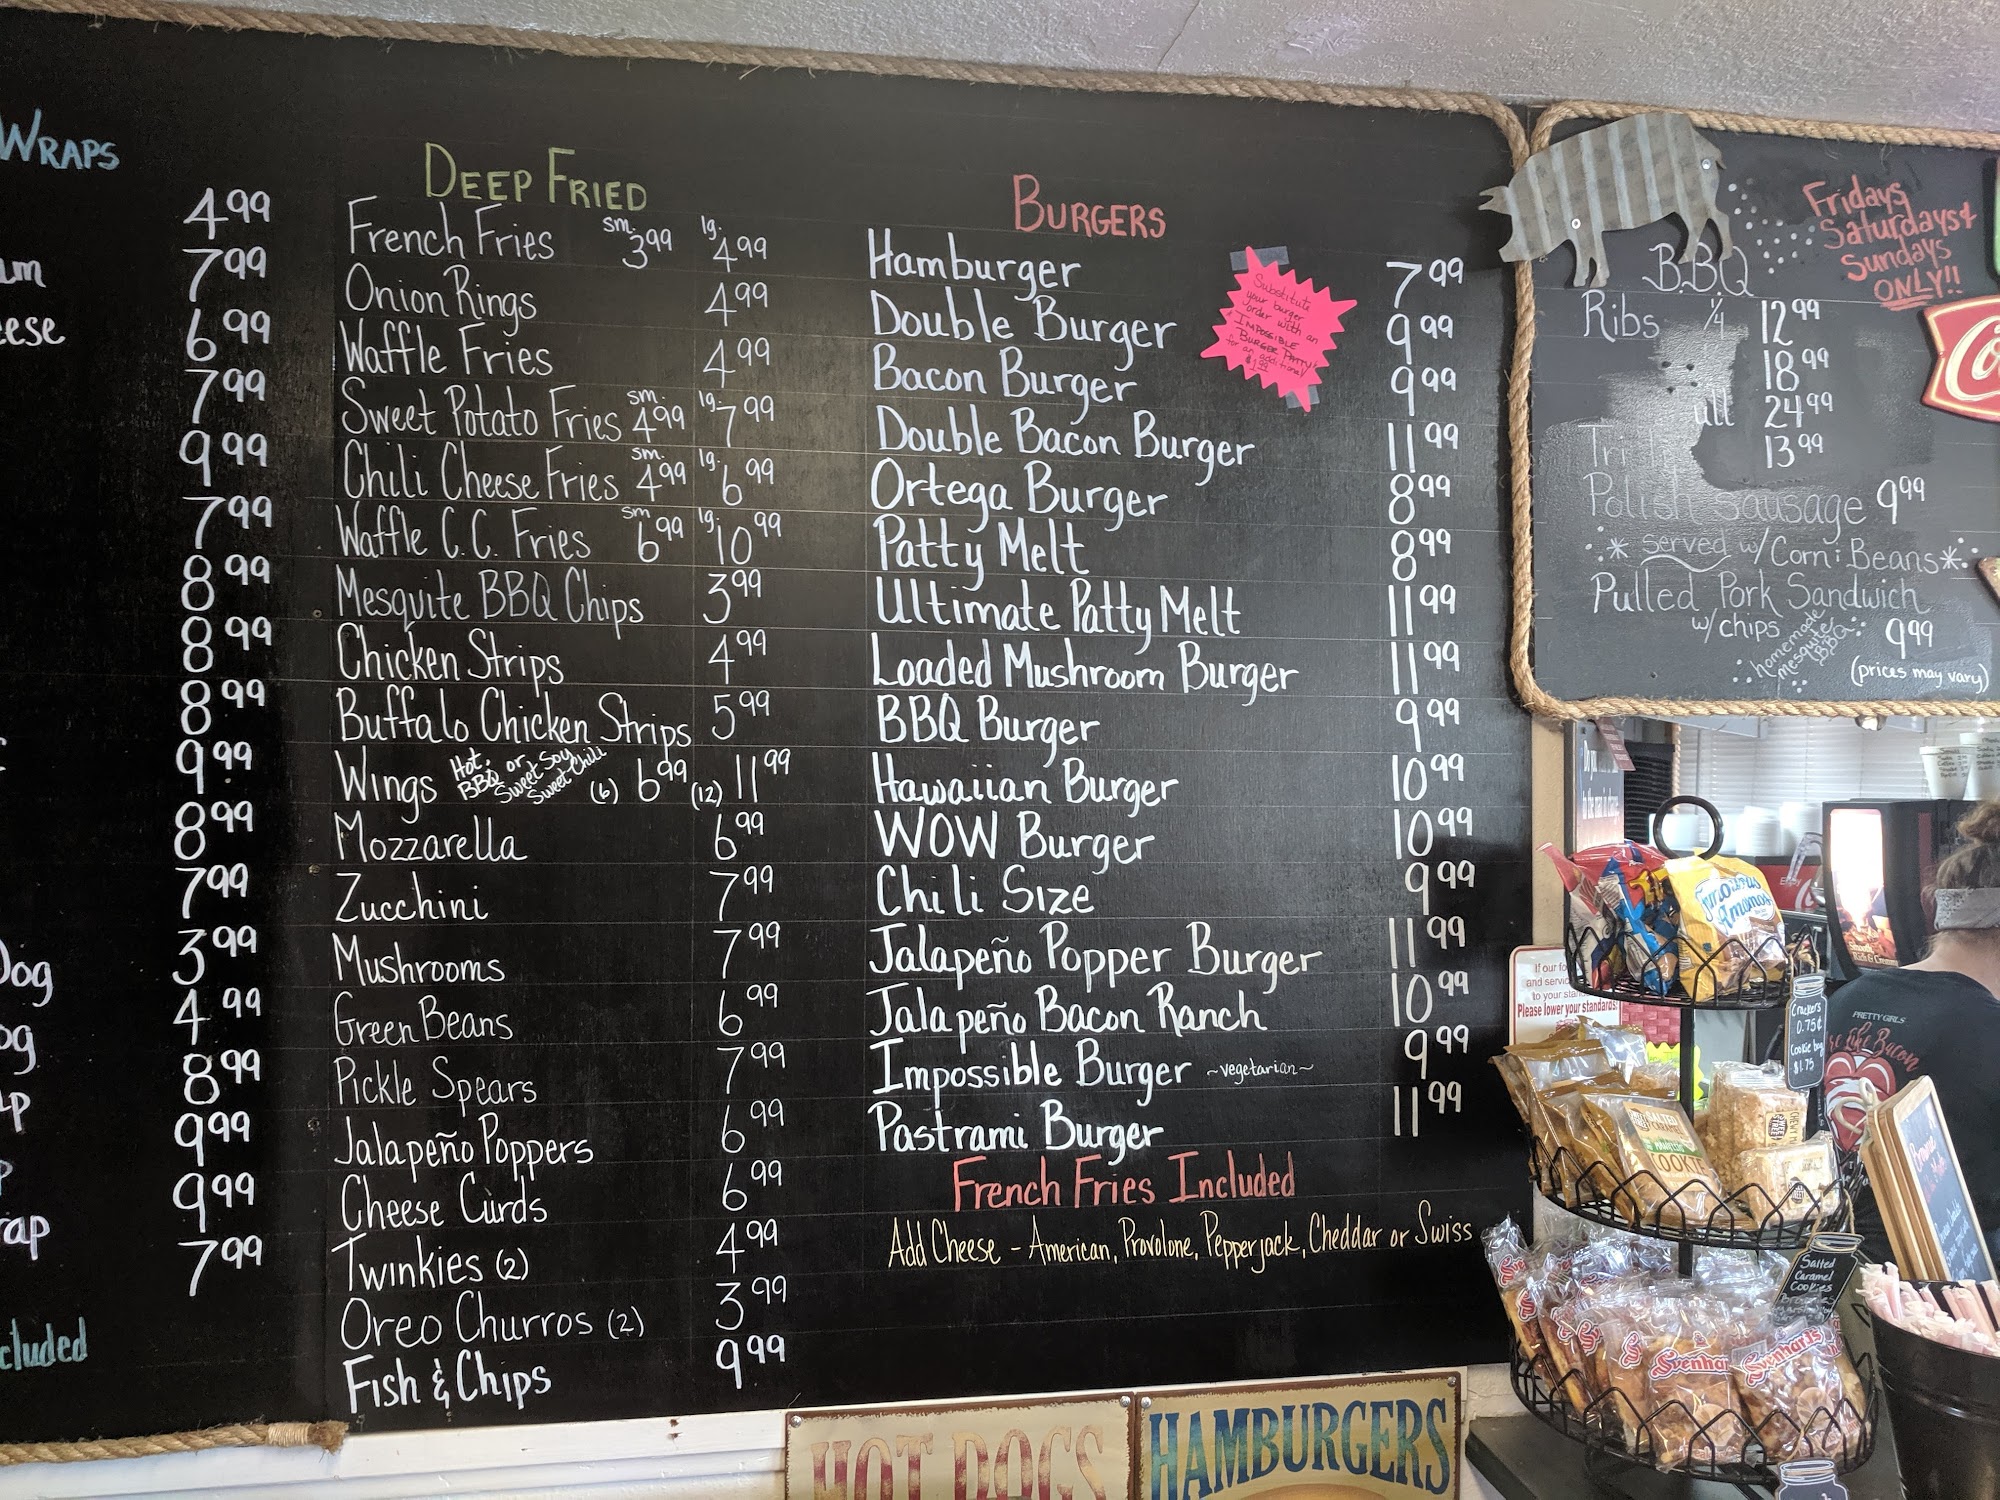 WRAPS
4.99
7.99
6.99
eese
7.99
9.99
7.99
8.99
8.99
8.99
9.99
8.99
7.99
3.99
Dog
4.99
8.99
9.99
9.99
7.99
DEEP FRIED
French Fries sm. 3.99 lg. 4.99
Onion Rings 4.99
Waffle Fries 4.99
Sweet Potato Fries sm. 4.99 lg. 7.99
Chili Cheese Fries sm. 4.99 lg. 6.99
Waffle C.C. Fries sm 6.99 lg. 10.99
Mesquite BBQ Chips 3.99
Chicken Strips 4.99
Buffalo Chicken Strips 5.99
Wings Hot, BBQ or Sweet Soy Sweet Chili (6) 6.99 (12) 11.99
Mozzarella 6.99
Zucchini 7.99
Mushrooms 7.99
Green Beans 6.99
Pickle Spears 7.99
Jalapeño Poppers 6.99
Cheese Curds 6.99
Twinkies (2) 4.99
Oreo Churros (2) 3.99
Fish & Chips 9.99
BURGERS
Hamburger 7.99
Double Burger 9.99
Bacon Burger 9.99
Double Bacon Burger 11.99
Ortega Burger 8.99
Patty Melt 8.99
Ultimate Patty Melt 11.99
Loaded Mushroom Burger 11.99
BBQ Burger 9.99
Hawaiian Burger 10.99
WOW Burger 10.99
Chili Size 9.99
Jalapeño Popper Burger 11.99
Jalapeño Bacon Ranch 10.99
Impossible Burger ~vegetarian~ 9.99
Pastrami Burger 11.99
French Fries Included
Add Cheese - American, Provolone, Pepperjack, Cheddar or Swiss
Substitute
your burger
order with an
IMPOSSIBLE
BURGER PATTY
for an additional
$1.99
Fridays,
Saturdays &
Sundays
ONLY!!
BBQ
Ribs 1/4 12.99
18.99
ull 24.99
Tri 13.99
Polish Sausage 9.99
* Served w/ Corn & Beans *
Pulled Pork Sandwich
w/chips 9.99
homemade
mesquite
BBQ
(prices may vary)
Famous Amos
If our fo
and servic
to your stan
Please lower your standards!
Crackers
0.75¢
Cookie bag
$1.75
PRETTY GIRLS
Like Bacon
Salted
Caramel
Cookies
Svenhar
Svenhard's
HOT DOGS
HAMBURGERS